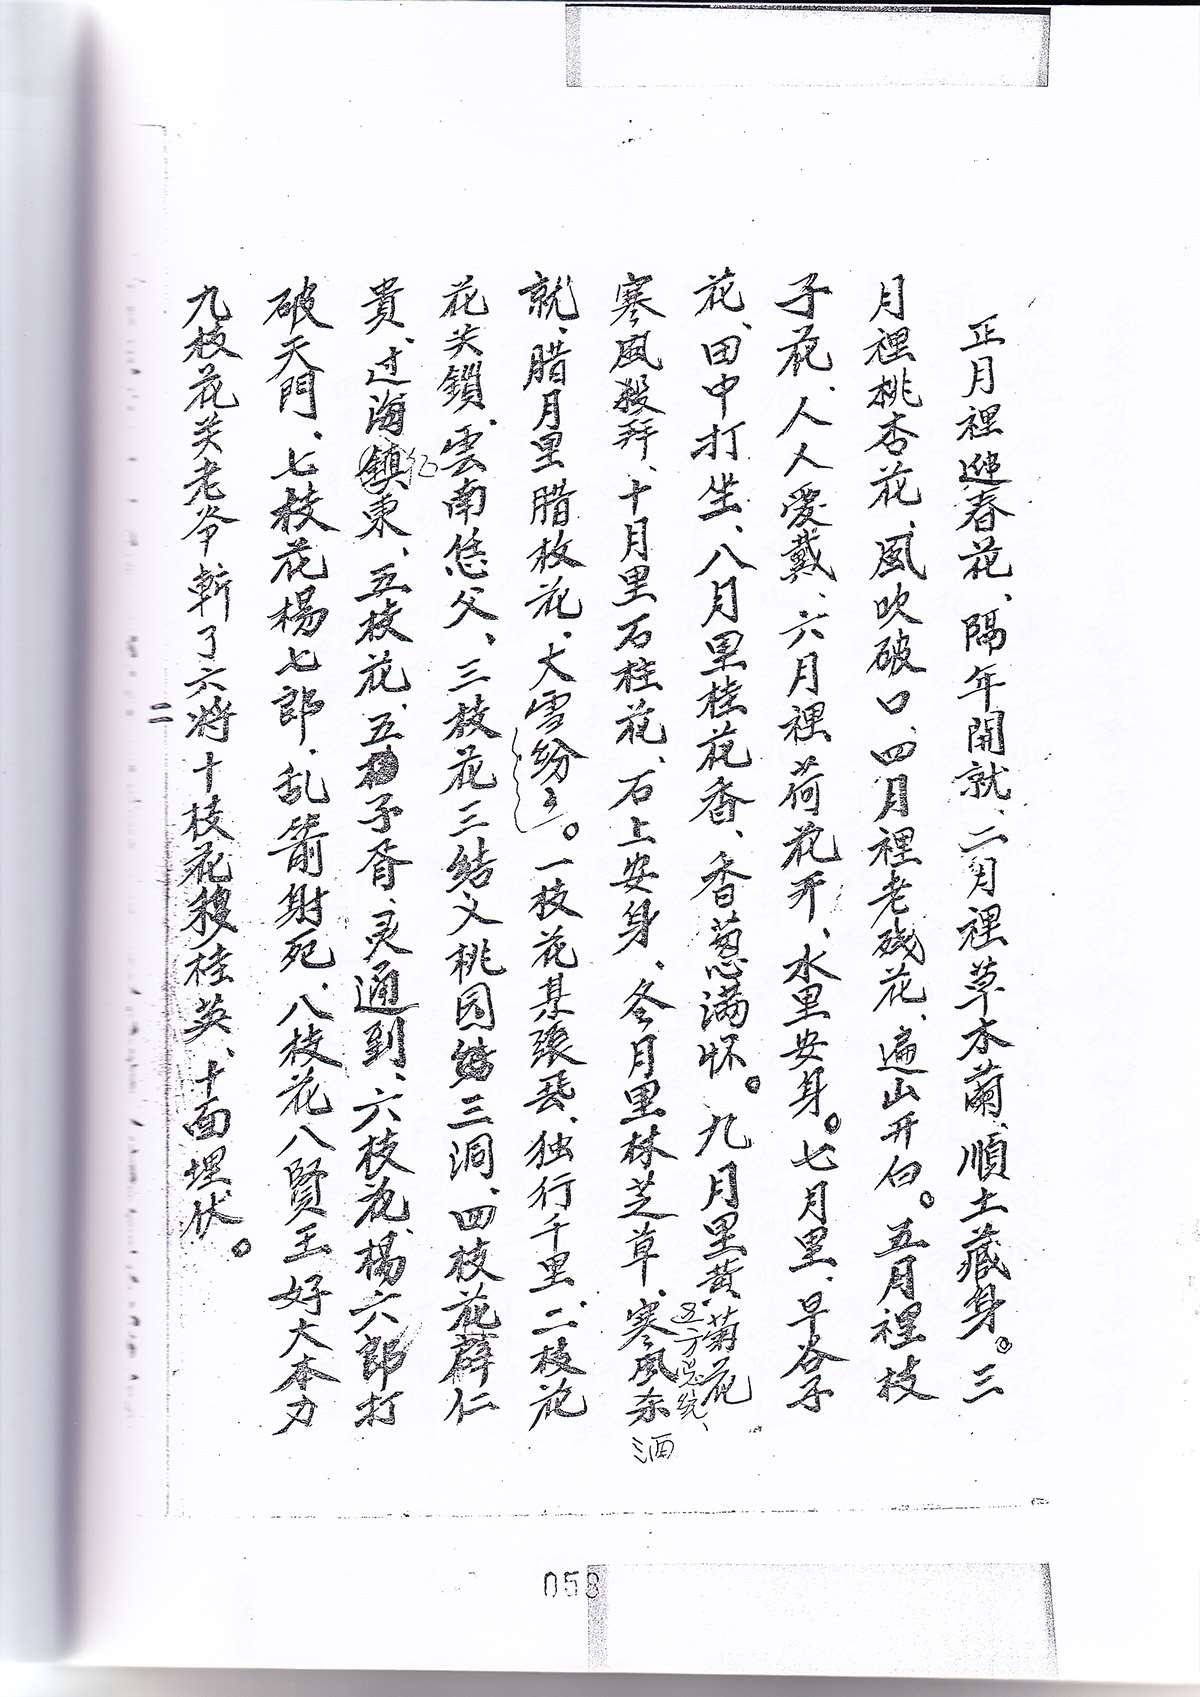 正月裡迎春花、隔年開就、二月裡草木蘭、順土藏身。三
月裡桃杏花、風吹破口、四月裡老殘花、遍山开白。五月裡枝
子花、人人愛戴、六月裡荷花开、水里安身。七月里、早谷子
花、田中打坐、八月里桂花香、香葱满怀。九月里黄菊花
寒風殺拜、十月里石桂花、石上安身、冬月里林芝草、寒風东
洒
就、腊月里腊枚花、大雪纷。一枝花某張飛、独行千里、二枝花
花关鎖、雲南恁父、三枝花三結义桃园結三洞、四枝花薛仁
貴、过海鎮東、五枝花、五子胥、灵通到、六枝花、楊六郎打
破天門、七枝花楊七郎、乱箭射死、八枝花八賢王好大本力
九枝花关老爷斬了六将十枝花穆桂英、十面埋伏。
二
058